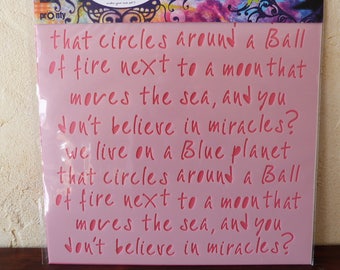 that circles around a Ball
of fire next to a moon that
moves the sea, and you
don't believe in miracles?
we live on a Blue planet
that circles around a Ball
of fire next to a moon that
moves the sea, and you
don't believe in miracles?